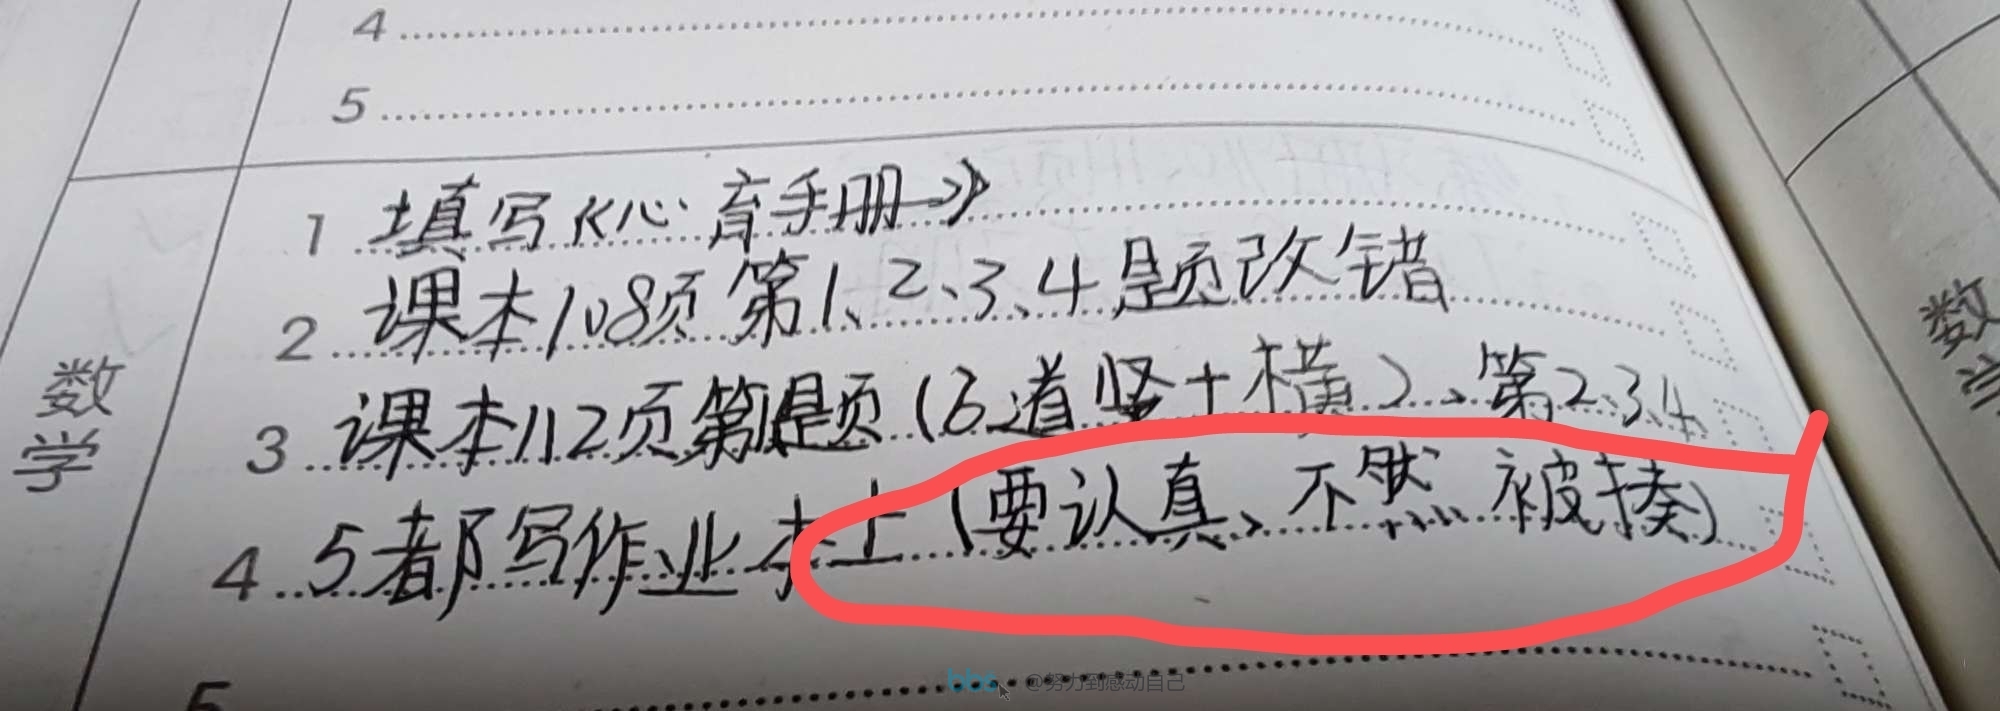 4
5
数学
1 填写《心育手册》
2 课本108页第1、2、3、4题改错
3 课本112页第1题(6道竖+横)、第2、3、4
4 5都写作业本上(要认真、不然被揍)
5
数学
bbs @努力到感动自己